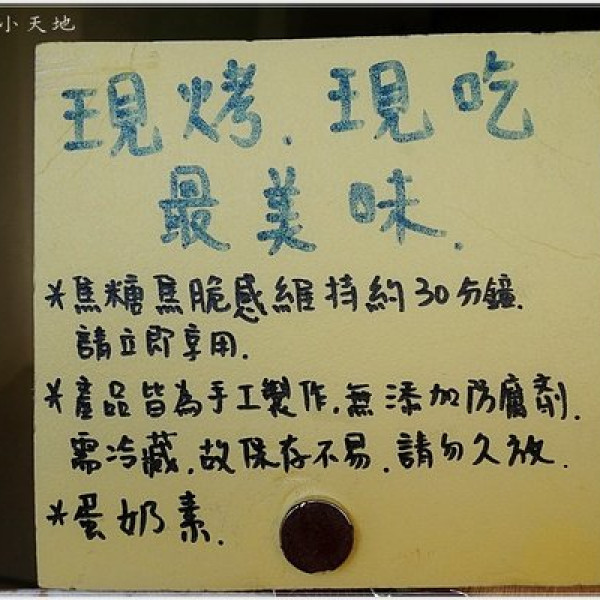 小天地
現烤.現吃
最美味.
*焦糖焦脆感維持約30分鐘.
請立即享用.
*產品皆為手工製作.無添加防腐劑.
需冷藏.故保存不易.請勿久放.
*蛋奶素.